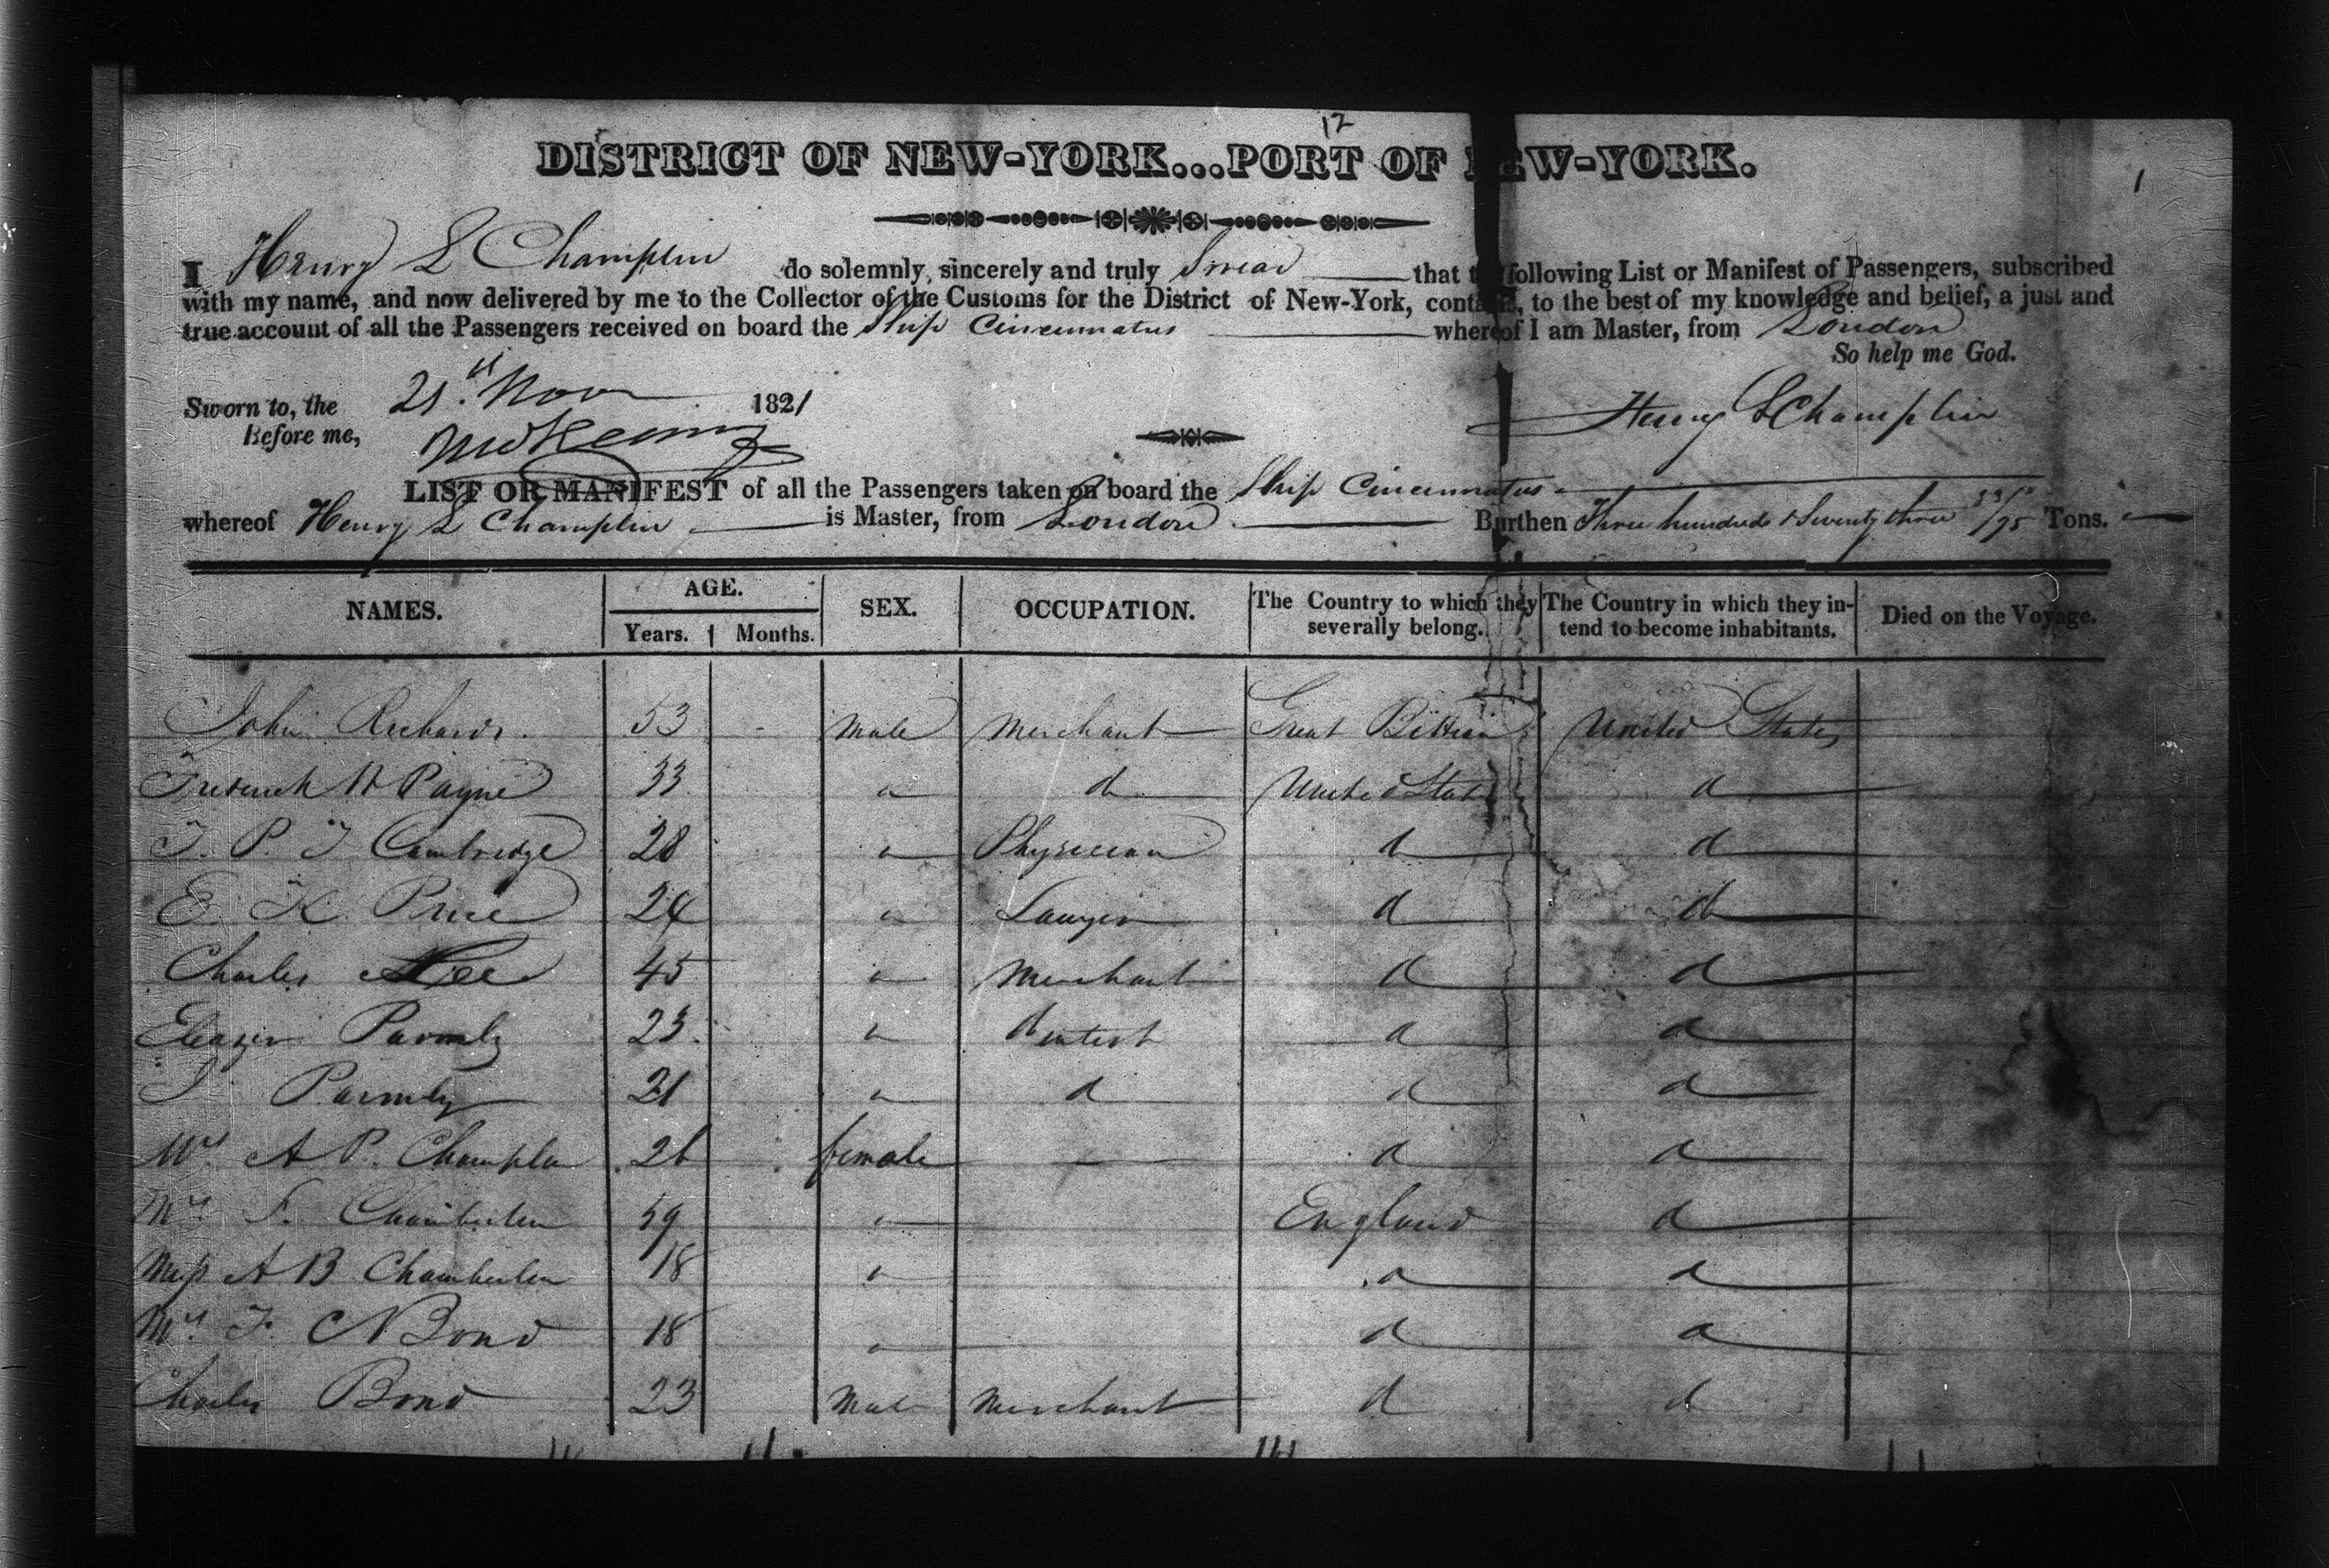 12
DISTRICT OF NEW-YORK...PORT OF NEW-YORK.
1
I Henry L Champlin do solemnly, sincerely and truly Swear that the following List or Manifest of Passengers, subscribed
with my name, and now delivered by me to the Collector of the Customs for the District of New-York, contains, to the best of my knowledge and belief, a just and
true account of all the Passengers received on board the Ship Cincinnatus whereof I am Master, from London
So help me God.
Sworn to, the 21st Nov 1821
Before me,
Henry L Champlin
LIST OR MANIFEST of all the Passengers taken on board the Ship Cincinnatus
whereof Henry L Champlin is Master, from London Burthen Three hundred & Seventy three /95 Tons.
NAMES. AGE. Years. Months. SEX. OCCUPATION. The Country to which they severally belong. The Country in which they intend to become inhabitants. Died on the Voyage.
John Richards 53 - Male Merchant Great Brittain United States
Frederick W Payne 33 " do United States d
T. P. J Cambridge 28 " Physician d d
E. K. Price 24 " Lawyer d d
Charles Lee 45 " Merchant d d
Eleazer Parmly 23 " dentist d d
J Parmly 21 " d d d
Mrs A P. Champlin 26 female — d d
Mrs F. Chamberlen 59 " England d
Miss A B Chamberlen 18 " d d
Mrs F. N Bond 18 " d d
Charles Bond 23 Male Merchant d d